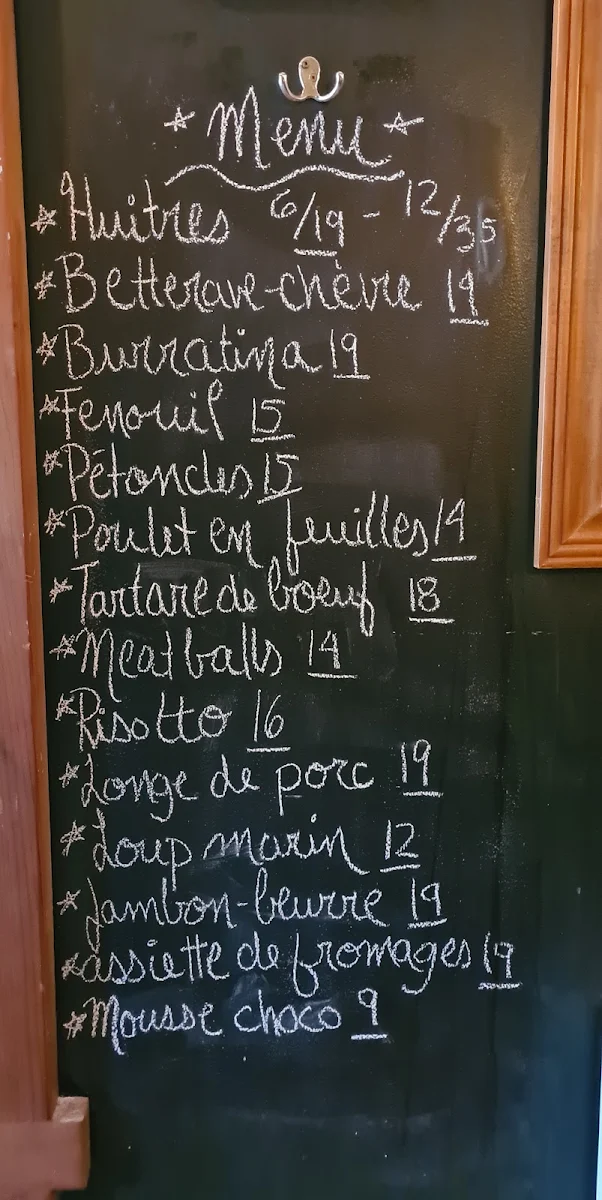 * Menu *
* Huitres 6/19 - 12/35
* Betterave-chèvre 19
* Burratina 19
* Fenouil 15
* Pétoncles 15
* Poulet en feuilles 14
* Tartare de boeuf 18
* Meatballs 14
* Risotto 16
* Longe de porc 19
* Loup marin 12
* Jambon-beurre 19
* assiette de fromages 19
* Mousse choco 9